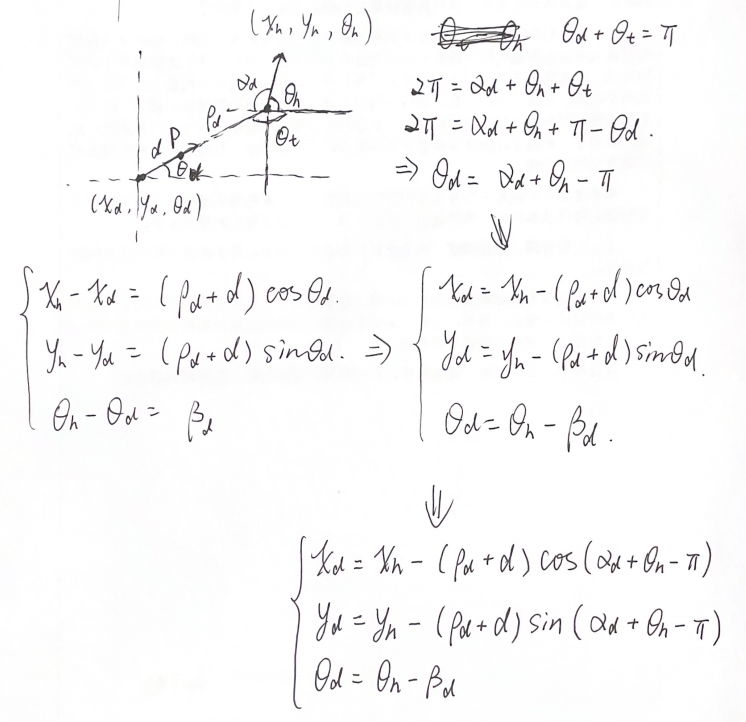 (x_h, y_h, θ_h)
α_d
θ_h
ρ_d
θ_t
d P
θ_d
(x_d, y_d, θ_d)
θ_d + θ_t = π
2π = α_d + θ_h + θ_t
2π = α_d + θ_h + π - θ_d .
⇒ θ_d = α_d + θ_h - π
⇓
x_h - x_d = (ρ_d + d) cos θ_d .
y_h - y_d = (ρ_d + d) sin θ_d .
θ_h - θ_d = β_d
⇒
x_d = x_h - (ρ_d + d) cos θ_d
y_d = y_h - (ρ_d + d) sin θ_d .
θ_d = θ_h - β_d .
⇓
x_d = x_h - (ρ_d + d) cos (α_d + θ_h - π)
y_d = y_h - (ρ_d + d) sin (α_d + θ_h - π)
θ_d = θ_h - β_d